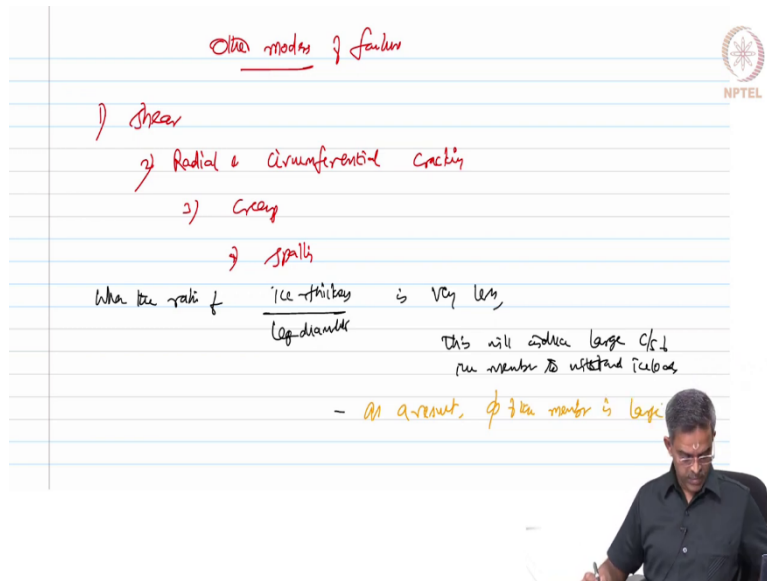 Other modes of failure
NPTEL
1) Shear
2) Radial & circumferential cracking
3) Creep
4) Spalling
When the ratio of ice thickness is very less,
leg diameter
This will induce large c/s of
the member to withstand ice loads
- as a result, ϕ of the member is large